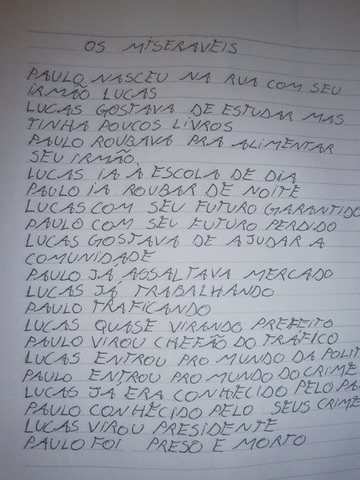 OS MISERAVEIS
PAULO NASCEU NA RUA COM SEU
IRMÃO LUCAS
LUCAS GOSTAVA DE ESTUDAR MAS
TINHA POUCOS LIVROS
PAULO ROUBAVA PRA ALIMENTAR
SEU IRMÃO.
LUCAS IA À ESCOLA DE DIA
PAULO IA ROUBAR DE NOITE
LUCAS COM SEU FUTURO GARANTIDO
PAULO COM SEU FUTURO PERDIDO
LUCAS GOSTAVA DE AJUDAR A
COMUNIDADE
PAULO JÁ ASSALTAVA MERCADO
LUCAS JÁ TRABALHANDO
PAULO TRAFICANDO
LUCAS QUASE VIRANDO PREFEITO
PAULO VIROU CHEFÃO DO TRÁFICO
LUCAS ENTROU PRO MUNDO DA POLIT
PAULO ENTROU PRO MUNDO DO CRIME
LUCAS JÁ ERA CONHECIDO PELO PA
PAULO CONHECIDO PELO SEUS CRIME
LUCAS VIROU PRESIDENTE
PAULO FOI PRESO E MORTO